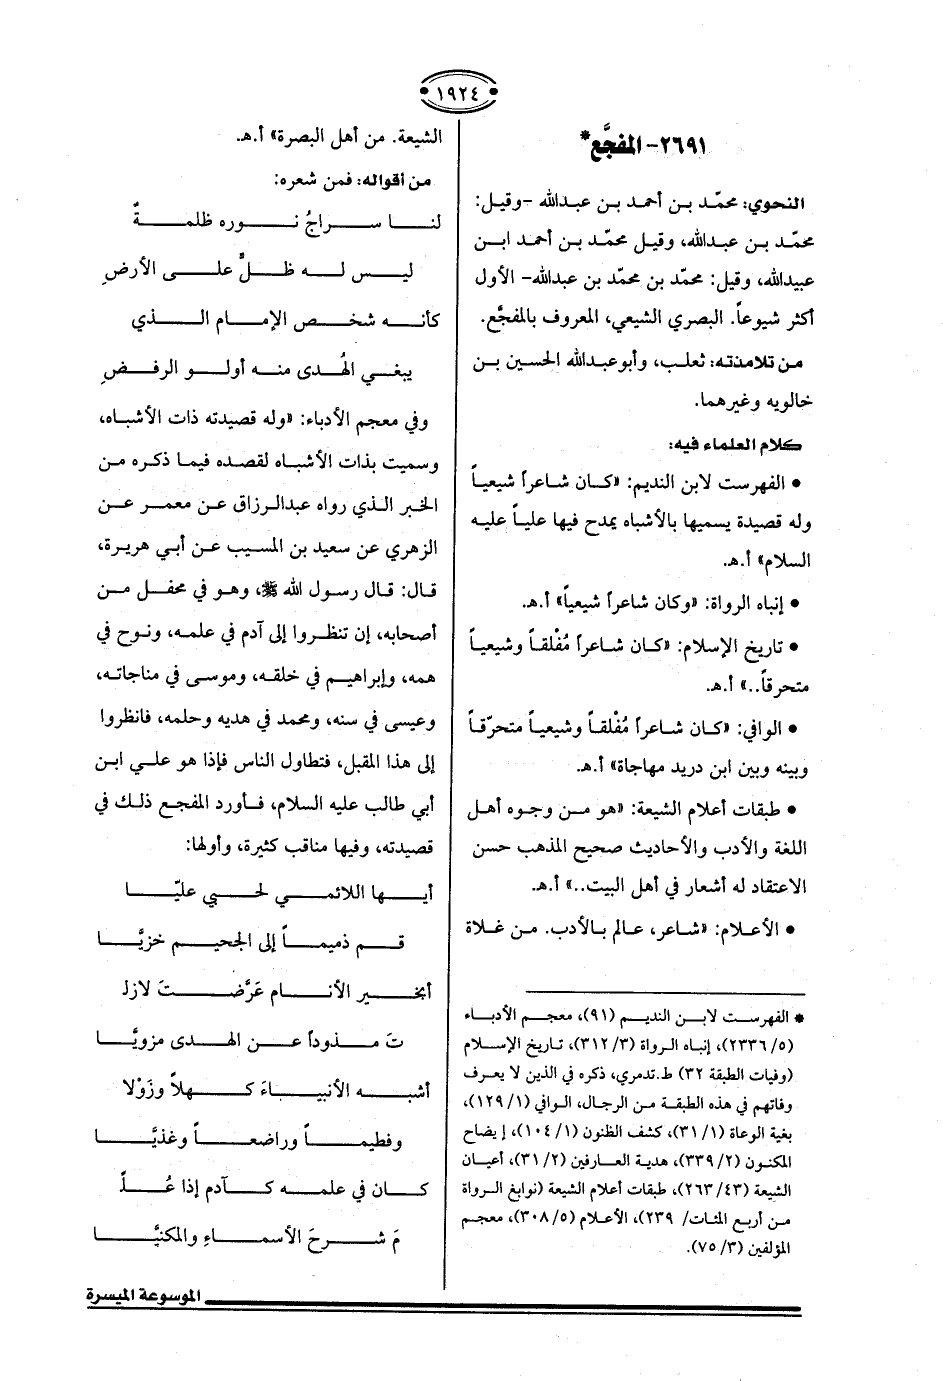 ١٩٢٤
٢٦٩١- المفجَّع*
النحوي: محمّد بن أحمد بن عبدالله -وقيل:
محمّد بن عبدالله، وقيل محمّد بن أحمد ابن
عبيدالله، وقيل: محمّد بن محمّد بن عبدالله- الأول
أكثر شيوعاً. البصري الشيعي، المعروف بالمفجَّع.
من تلامذته: ثعلب، وأبوعبدالله الحسين بن
خالويه وغيرهما.
كلام العلماء فيه:
• الفهرست لابن النديم: «كان شاعراً شيعياً
وله قصيدة يسميها بالأشباه يمدح فيها علياً عليه
السلام» أ.هـ.
• إنباه الرواة: «وكان شاعراً شيعياً» أ.هـ.
• تاريخ الإسلام: «كان شاعراً مُفْلقاً وشيعياً
متحرقاً..» أ.هـ.
• الوافي: «كان شاعراً مُفْلقاً وشيعياً متحرّقاً
وبينه وبين ابن دريد مهاجاة» أ.هـ.
• طبقات أعلام الشيعة: «هو من وجوه أهل
اللغة والأدب والأحاديث صحيح المذهب حسن
الاعتقاد له أشعار في أهل البيت..» أ.هـ.
• الأعلام: «شاعر، عالم بالأدب. من غلاة
* الفهرست لابن النديم (٩١)، معجم الأدباء
(٥/ ٢٣٣٦)، إنباه الرواة (٣/ ٣١٢)، تاريخ الإسلام
(وفيات الطبقة ٣٢) ط.تدمري، ذكره في الذين لا يعرف
وفاتهم في هذه الطبقة من الرجال، الوافي (١/ ١٢٩)،
بغية الوعاة (١/ ٣١)، كشف الظنون (١/ ١٠٤)، إيضاح
المكنون (٢/ ٣٣٩)، هدية العارفين (٢/ ٣١)، أعيان
الشيعة (٤٣/ ٢٦٣)، طبقات أعلام الشيعة (نوابغ الرواة
من أربع المئات/ ٢٣٩)، الأعلام (٥/ ٣٠٨)، معجم
المؤلفين (٣/ ٧٥).
الشيعة. من أهل البصرة» أ.هـ.
من أقواله: فمن شعره:
لنا سراجُ نوره ظلمةٌ
ليس له ظلٌّ على الأرضِ
كأنه شخص الإمام الذي
يبغي الهُدى منه أولو الرفضِ
وفي معجم الأدباء: «وله قصيدته ذات الأشباه،
وسميت بذات الأشباه لقصده فيما ذكره من
الخبر الذي رواه عبدالرزاق عن معمر عن
الزهري عن سعيد بن المسيب عن أبي هريرة،
قال: قال رسول الله ﷺ، وهو في محفل من
أصحابه، إن تنظروا إلى آدم في علمه، ونوح في
همه، وإبراهيم في خلقه، وموسى في مناجاته،
وعيسى في سنه، ومحمد في هديه وحلمه، فانظروا
إلى هذا المقبل، فتطاول الناس فإذا هو علي ابن
أبي طالب عليه السلام، فأورد المفجع ذلك في
قصيدته، وفيها مناقب كثيرة، وأولها:
أيها اللائمي لحبي عليّا
قم ذميماً إلى الجحيم خزيَّا
أبخير الأنام عَرَّضتَ لازلـ
تَ مذوداً عن الهدى مزويَّا
أشبه الأنبياءَ كهلاً وزَوْلا
وفطيماً وراضعاً وغذيَّا
كان في علمه كآدم إذا عُلـ
مَ شرحَ الأسماءِ والمكنيَّا
الموسوعة الميسرة